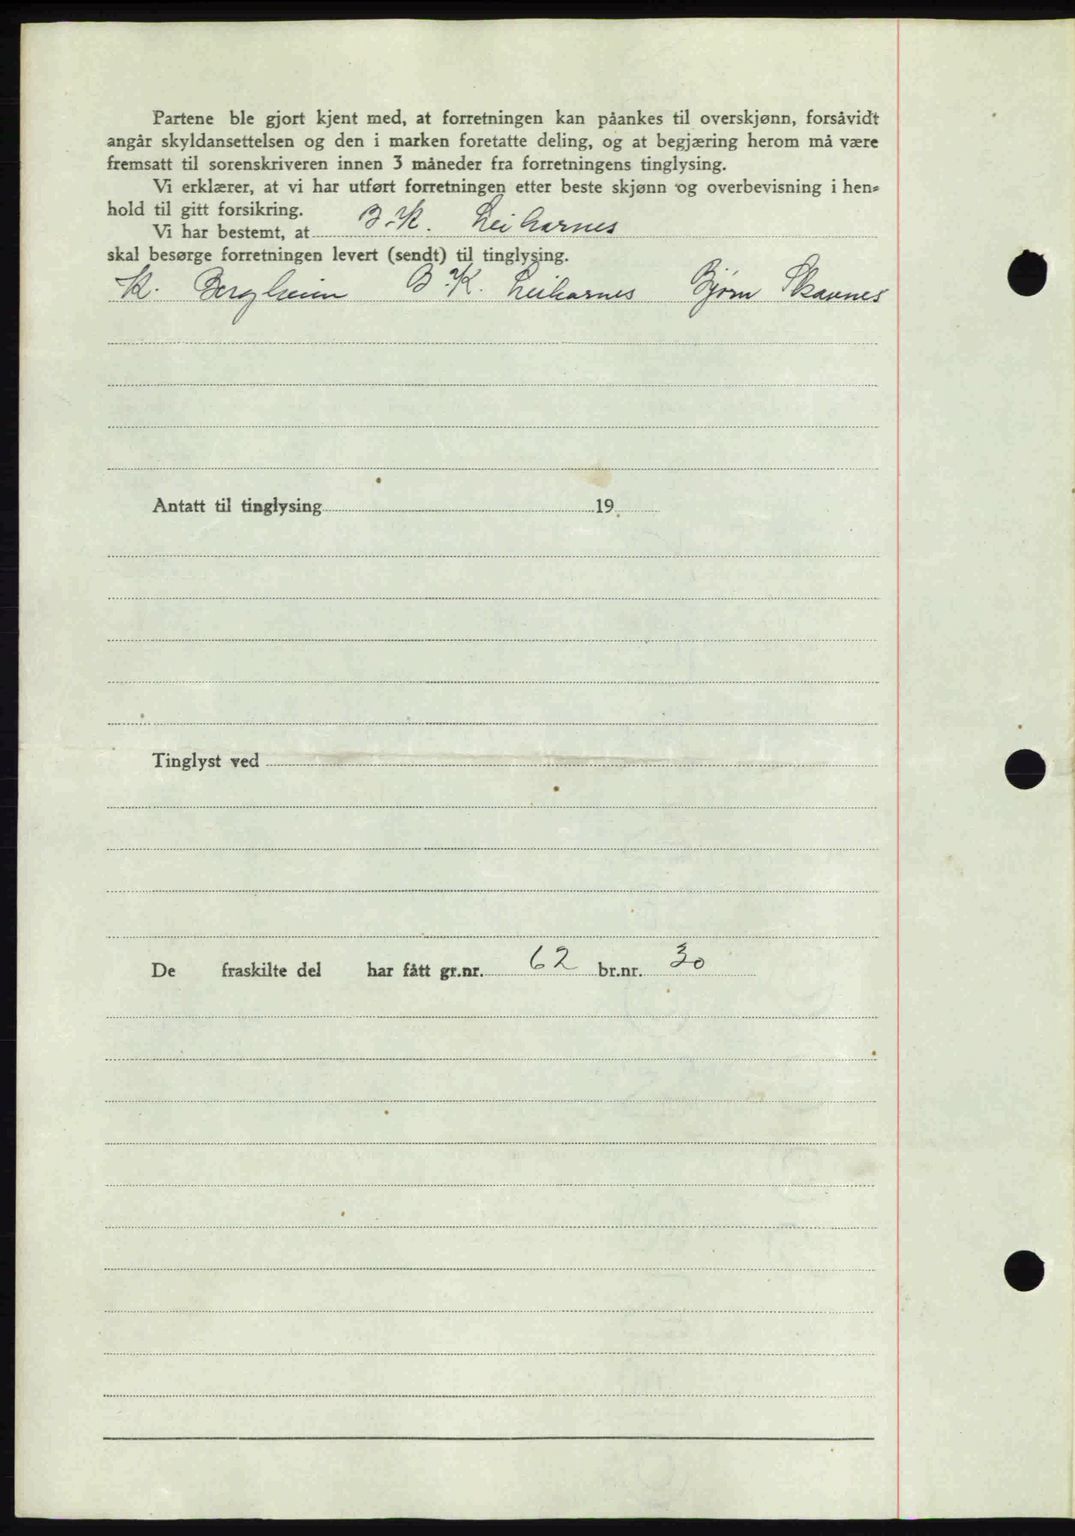 Partene ble gjort kjent med, at forretningen kan påankes til overskjønn, forsåvidt
angår skyldansettelsen og den i marken foretatte deling, og at begjæring herom må være
fremsatt til sorenskriveren innen 3 måneder fra forretningens tinglysing.
Vi erklærer, at vi har utført forretningen etter beste skjønn og overbevisning i hen-
hold til gitt forsikring.
Vi har bestemt, at B. K. Leikarnes
skal besørge forretningen levert (sendt) til tinglysing.
K. Bergheim B. K. Leikarnes Bjørn Skavnes
Antatt til tinglysing 19
Tinglyst ved
De fraskilte del har fått gr.nr. 62 br.nr. 30